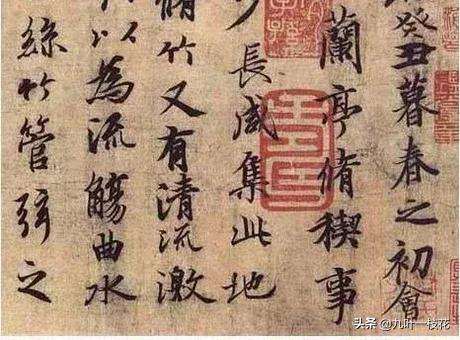 癸丑暮春之初會
蘭亭脩稧事
少長咸集此地
脩竹又有清流激
以為流觴曲水
絲竹管弦之
头条 @九叶一枝花